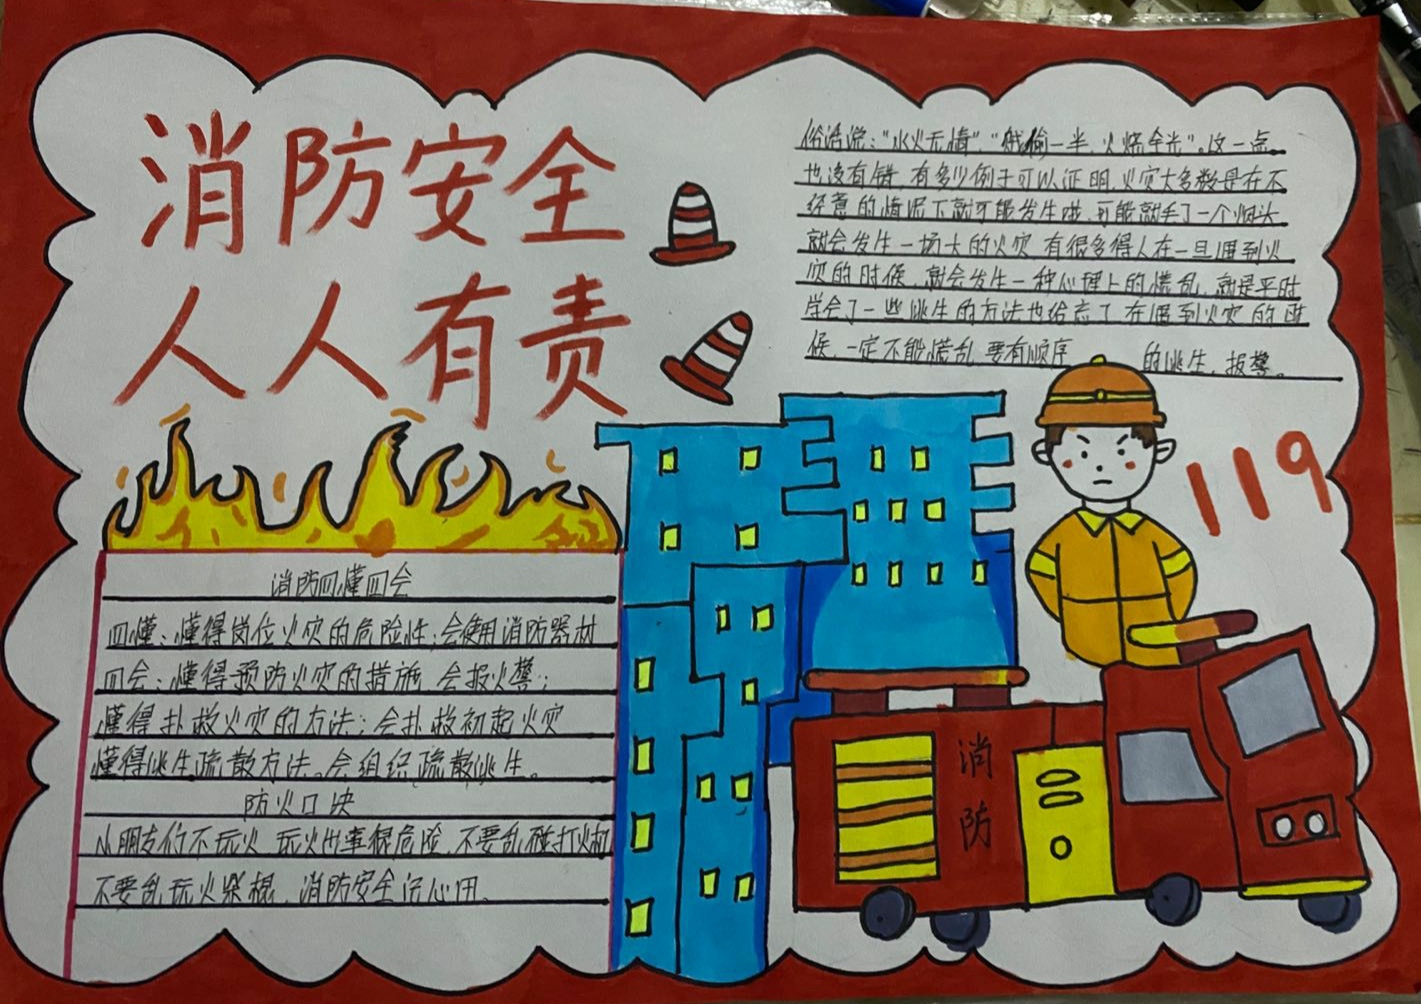 消防安全
人人有责
俗话说："水火无情""贼偷一半,火烧全光".这一点
也没有错,有多少例子可以证明,火灾大多数是在不
经意的情况下就可能发生啦,可能就手了一个烟头
就会发生一场大的火灾,有很多得人在一旦遇到火
灾的时候,就会发生一种心理上的慌乱,就是平时
学会了一些逃生的方法也给忘了,在遇到火灾的时
候,一定不能慌乱,要有顺序的逃生,报警。
119
消防四懂四会
四懂：懂得岗位火灾的危险性；会使用消防器材
四会：懂得预防火灾的措施,会报火警；
懂得扑救火灾的方法；会扑救初起火灾
懂得逃生疏散方法。会组织疏散逃生。
防火口诀
小朋友们不玩火,玩火出事很危险,不要乱碰打火机
不要乱玩火柴棍,消防安全记心田。
消
防